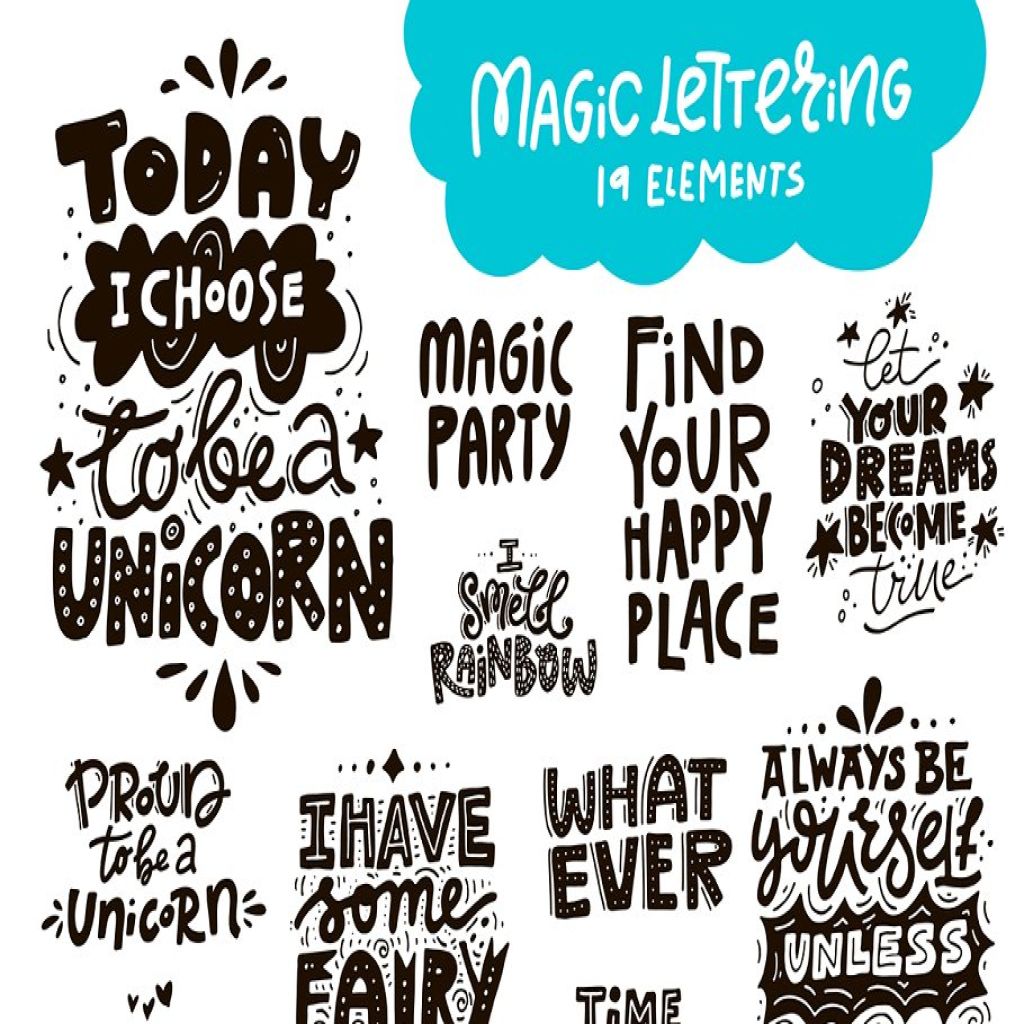 MAGIC LETTERING
19 ELEMENTS
TODAY
I CHOOSE
to be a
UNICORN
MAGIC
PARTY
FIND
YOUR
HAPPY
PLACE
let
YOUR
DREAMS
BECOME
true
I
Smell
RAINBOW
PROUD
to be a
UNICORN
I HAVE
some
FAIRY
WHAT
EVER
TIME
ALWAYS BE
yourself
UNLESS